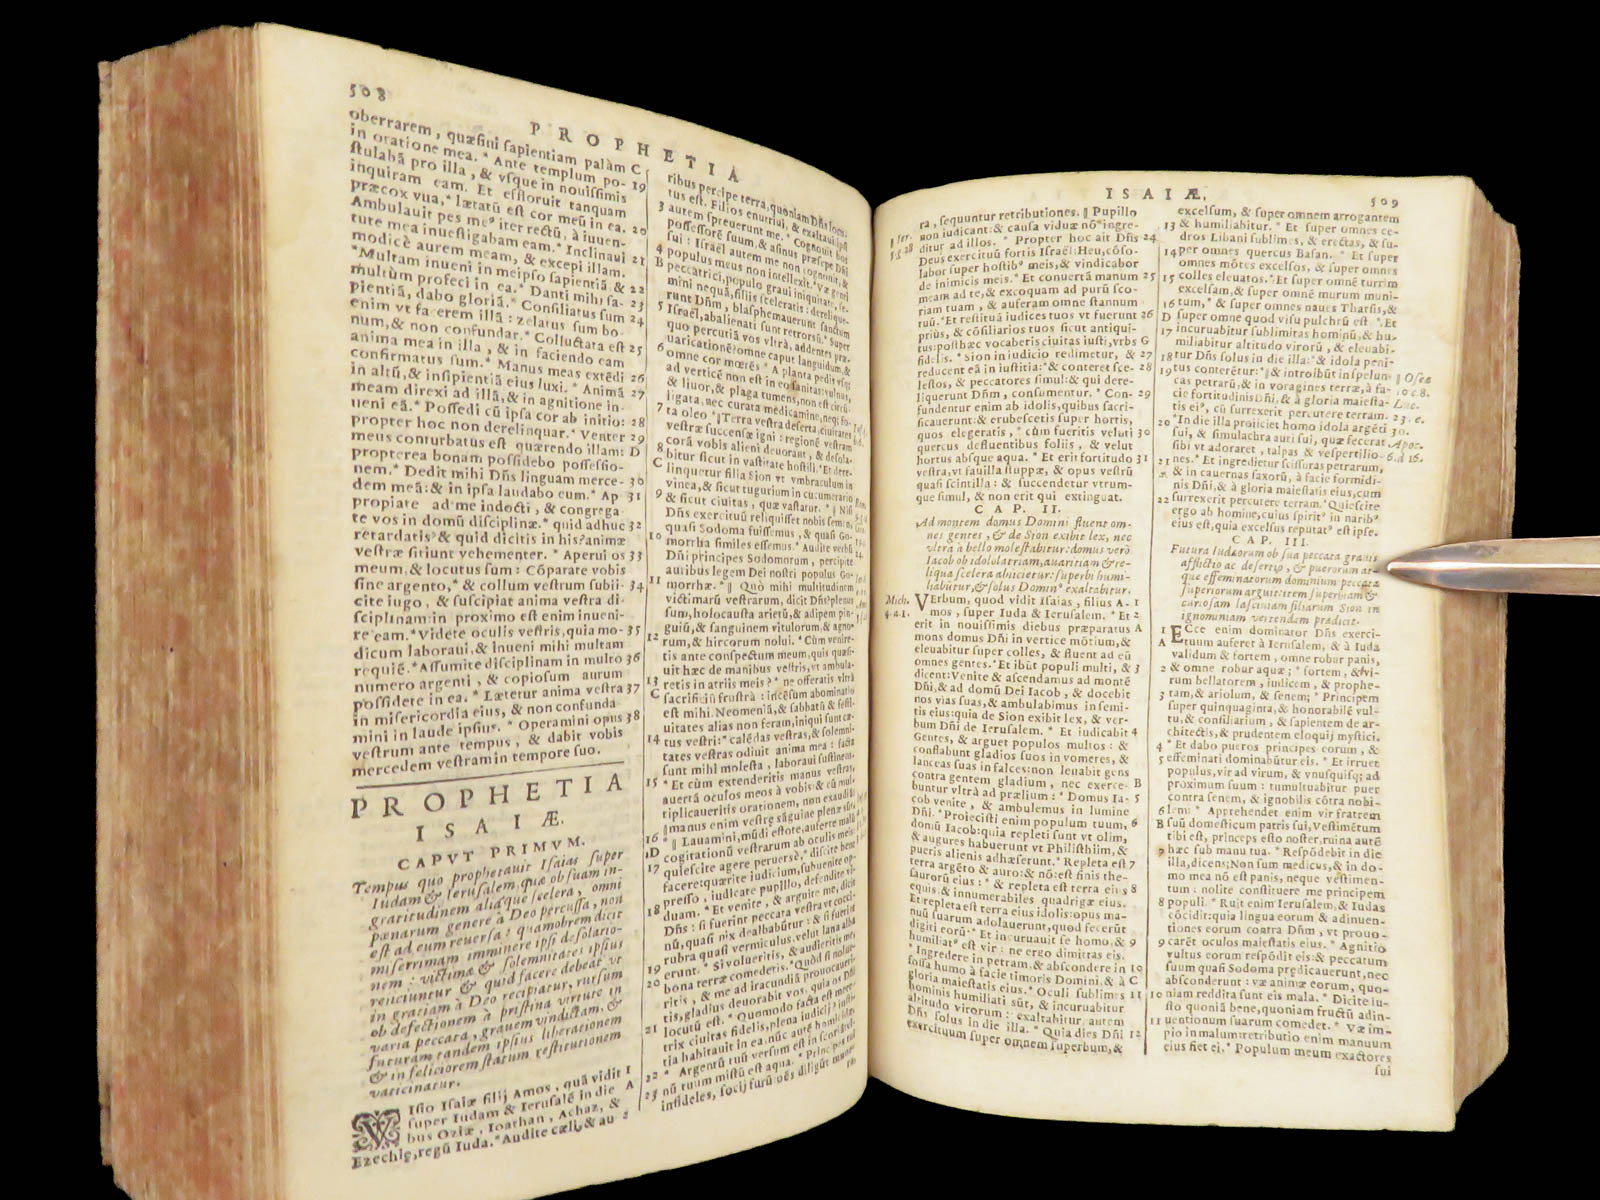 508
PROPHETIA
oberrarem, quæsiui sapientiam palàm C
in oratione mea. * Ante templum po- 19
stulabā pro illa, & vsque in nouissimis
inquiram eam. Et effloruit tanquam
præcox vua, * lætatū est cor meū in ea. 20
Ambulauit pes meꝰ iter rectū, à iuuen-
tute mea inuestigabam eam. * Inclinaui 21
modicè aurem meam, & excepi illam.
*Multam inueni in meipso sapientiā & 22
multùm profeci in ea. * Danti mihi sa- 23
pientiā, dabo gloriā. * Consiliatus sum 24
enim vt facerem illā: zelatus sum bo-
num, & non confundar. * Colluctata est 25
anima mea in illa, & in faciendo eam
confirmatus sum. * Manus meas extēdi 26
in altū, & insipientiā eius luxi. * Animā 27
meam direxi ad illā, & in agnitione in-
ueni eā. * Possedi cū ipsa cor ab initio: 28
propter hoc non derelinquar. * Venter 29
meus conturbatus est quærendo illam: D
propterea bonam possidebo possessio-
nem. * Dedit mihi Dñs linguam merce- 30
dem meā: & in ipsa laudabo eum. * Ap 31
propiate ad me indocti, & congrega
te vos in domū disciplinæ. * quid adhuc 32
retardatis? & quid dicitis in his? animæ
vestræ sitiunt vehementer. * Aperui os 33
meum, & locutus sum: Cōparate vobis
sine argento, * & collum vestrum subii- 34
cite iugo, & suscipiat anima vestra di-
sciplinam: in proximo est enim inueni-
re eam. * Videte oculis vestris, quia mo- 35
dicum laboraui, & inueni mihi multam
requiē. * Assumite disciplinam in multo 36
numero argenti, & copiosum aurum
possidete in ea. * Lætetur anima vestra 37
in misericordia eius, & non confunda
mini in laude ipsiuꝰ. * Operamini opus 38
vestrum ante tempus, & dabit vobis
mercedem vestram in tempore suo.
PROPHETIA
ISAIÆ.
CAPVT PRIMVM.
Tempus quo prophetauit Isaias super
Iudam & Ierusalem, quæ ob suam in-
gratitudinem aliaque scelera, omni
pœnarum genere à Deo percussa, non
est ad eum reuersa: quamobrem dicit
miserrimam imminere ipsi desolatio-
nem: victimæ & solemnitates ipsius
reiiciuntur & quid facere debeat vt
in gratiam à Deo recipiatur, rursum
ob defectionem à pristina virtute in
varia peccata, grauem vindictam, &
futuram tandem ipsius liberationem
& in feliciorem statum restitutionem
vaticinatur.
VIsio Isaiæ filij Amos, quā vidit 1
super Iudam & Ierusalē in die A
bus Oziæ, Ioathan, Achaz, &
Ezechię, regū Iuda. * Audite cæli, & au 2
ribus percipe terra, quoniam Dñs locu-
tus est. Filios enutriui, & exaltaui: ipsi
3 autem spreuerunt me. * Cognouit bos
possessorē suum, & asinus præsepe Dñi
sui: Israël autem me non cognouit, &
4 populus meus non intellexit. * Væ genti
B peccatrici, populo graui iniquitate, se-
mini nequā, filiis sceleratis: derelique-
runt Dñm, blasphemauerunt sanctum
5 Israël, abalienati sunt retrorsū. * Super
quo percutiā vos vltrà, addentes præ-
uaricationē? omne caput languidum, &
6 omne cor mœrēs. * A planta pedis vsq;
ad verticē non est in eo sanitas: vulnus,
& liuor, & plaga tumens, non est circū-
ligata, nec curata medicamine, neq; fo-
7 ta oleo * Terra vestra deserta, ciuitates
vestræ succensæ igni: regionē vestram
corā vobis alieni deuorant, & desola-
8 bitur sicut in vastitate hostili. * Et dere-
C linquetur filia Sion vt vmbraculum in
vinea, & sicut tugurium in cucumerario
9 & sicut ciuitas, quæ vastatur. * Nisi
Dñs exercituū reliquisset nobis semen,
quasi Sodoma fuissemus, & quasi Go-
10 morrha similes essemus. * Audite verbū
Dñi principes Sodomorum, percipite
auribus legem Dei nostri populus Go-
11 morrhæ. * Quò mihi multitudinem
victimarū vestrarum, dicit Dñs? plenus
sum, holocausta arietū, & adipem pin-
guiū, & sanguinem vitulorum, & agno-
12 rum, & hircorum nolui. * Cùm venire-
tis ante conspectum meum, quis quæsi-
uit hæc de manibus vestris, vt ambula-
13 retis in atriis meis? * ne offeratis vltrà
C sacrificiū frustrà: incēsum abominatio
est mihi. Neomeniā, & sabbatū & festi-
uitates alias non feram, iniqui sunt cœ-
14 tus vestri: * calēdas vestras, & solemni-
tates vestras odiuit anima mea: facta
sunt mihi molesta, laboraui sustinens.
15 * Et cùm extenderitis manus vestras,
auertā oculos meos à vobis: & cū mul-
tiplicaueritis orationem, non exaudiā:
manus enim vestrę sāguine plenæ sūt:
16 * Lauamini, mūdi estote, auferte malū
D cogitationū vestrarum ab oculis meis:
17 quiescite agere peruersè, * discite bene
facere: quærite iudicium, subuenite op-
presso, iudicate pupillo, defendite vi-
18 duam. * Et venite, & arguite me, dicit
Dñs: si fuerint peccata vestra vt cocci-
nū, quasi nix dealbabūtur: & si fuerint
rubra quasi vermiculus, velut lana alba
19 erunt. * Si volueritis, & audieritis me,
20 bona terræ comedetis. * Quòd si nolue-
ritis, & me ad iracundiā prouocaueri-
tis, gladius deuorabit vos, quia os Dñi
21 locutū est. * Quomodo facta est mere-
trix ciuitas fidelis, plena iudicij? iusti-
tia habitauit in ea, nūc autē homicidæ.
22 * Argentū tuū versum est in scoriam: vi-
23 nū tuum mistū est aqua. * Principes tui
infideles, socij furū: oēs diligūt munera
ISAIÆ.
509
ra, sequuntur retributiones. Pupillo
non iudicant: & causa viduæ nō ingre-
ditur ad illos. * Propter hoc ait Dñs 24
Deus exercituū fortis Israël: Heu, cōso-
labor super hostibꝰ meis, & vindicabor
de inimicis meis. * Et conuertā manum 25
meam ad te, & excoquam ad purū sco-
riam tuam, & auferam omne stannum
tuū. * Et restituā iudices tuos vt fuerunt 26
priùs, & cōsiliarios tuos sicut antiqui-
tus: posthæc vocaberis ciuitas iusti, vrbs G
fidelis. * Sion in iudicio redimetur, & 27
reducent eā in iustitia: * & conteret sce- 28
lestos, & peccatores simul: & qui dere-
liquerunt Dñm, consumentur. * Con- 29
fundentur enim ab idolis, quibus sacri-
ficauerunt: & erubescetis super hortis,
quos elegeratis, * cùm fueritis veluti 30
quercus defluentibus foliis, & velut
hortus absque aqua. * Et erit fortitudo 31
vestra, vt fauilla stuppæ, & opus vestrū
quasi scintilla: & succendetur vtrum-
que simul, & non erit qui extinguat.
CAP. II.
Ad montem domus Domini fluent om-
nes gentes, & de Sion exibit lex, nec
vltrà à bello molestabitur: domus verò
Iacob ob idololatriam, auaritiam & re-
liqua scelera abiicietur: superbi humi-
liabūtur, & solus Dominꝰ exaltabitur.
Mich. 4.a.1.
VErbum, quod vidit Isaias, filius A- 1
mos, super Iuda & Ierusalem. * Et 2
erit in nouissimis diebus præparatus A
mons domus Dñi in vertice mōtium, &
eleuabitur super colles, & fluent ad eū
omnes gentes. * Et ibūt populi multi, & 3
dicent: Venite & ascendamus ad montē
Dñi, & ad domū Dei Iacob, & docebit
nos vias suas, & ambulabimus in semi-
tis eius: quia de Sion exibit lex, & ver-
bum Dñi de Ierusalem. * Et iudicabit 4
Gentes, & arguet populos multos: &
conflabunt gladios suos in vomeres, &
lanceas suas in falces: non leuabit gens
contra gentem gladium, nec exerce- B
buntur vltrà ad prælium: * Domus Ia- 5
cob venite, & ambulemus in lumine
Dñi. * Proiecisti enim populum tuum, 6
domū Iacob: quia repleti sunt vt olim,
& augures habuerunt vt Philisthiim, &
pueris alienis adhæserunt. * Repleta est 7
terra argēto & auro: & nō: est finis the-
saurorū eius: * & repleta est terra eius 8
equis, & innumerabiles quadrigæ eius.
Et repleta est terra eius idolis: opus ma-
nuū suarum adolauerunt, quod fecerūt
digiti eorū. * Et incuruauit se homo, & 9
humiliatꝰ est vir: ne ergo dimittas eis.
* Ingredere in petram, & abscondere in 10
fossa humo à facie timoris Domini, & à C
gloria maiestatis eius. * Oculi sublimes 11
hominis humiliati sūt, & incuruabitur
altitudo virorum: exaltabitur autem
Dñs solus in die illa. * Quia dies Dñi 12
exercituum super omnem superbum, &
excelsum, & super omnem arrogantem
13 & humiliabitur. * Et super omnes ce-
dros Libani sublimes, & erectas, & su-
14 per omnes quercus Basan. * Et super
omnes mōtes excelsos, & super omnes
15 colles eleuatos. * Et super omnē turrim
excelsam, & super omnē murum muni-
16 tum, * & super omnes naues Tharsis, &
D super omne quod visu pulchrū est. * Et
17 incuruabitur sublimitas hominū, & hu-
miliabitur altitudo virorū, & eleuabi-
18 tur Dñs solus in die illa: * & idola peni-
19 tus conterētur: * & introibūt in spelun-
cas petrarū, & in voragines terræ, à fa-
cie fortitudinis Dñi, & à gloria maiesta-
tis eiꝰ, cū surrexerit percutere terram.
20 * In die illa proiiciet homo idola argēti
sui, & simulachra auri sui, quæ fecerat
sibi vt adoraret, talpas & vespertilio-
21 nes. * Et ingredietur scissuras petrarum,
& in cauernas saxorū, à facie formidi-
nis Dñi, & à gloria maiestatis eius, cum
22 surrexerit percutere terram. * Quiescite
ergo ab homine, cuius spiritꝰ in naribꝰ
eius est, quia excelsus reputatꝰ est ipse.
Osee 10.c.8.
Luc. 23.e. 30.
Apoc. 6.d 16.
CAP. III.
Futura Iudæorum ob sua peccata grauis
afflictio ac desertio, & puerorum at-
que effeminatorum dominium peccata
superiorum arguit: item superbiam &
curiosam lasciuiam filiarum Sion in
ignominiam vertendam prædicit.
1 ECce enim dominator Dñs exerci-
A tuum auferet à Ierusalem, & à Iuda
validum & fortem, omne robur panis,
2 & omne robur aquæ; * fortem, & vi-
rum bellatorem, iudicem, & prophe-
3 tam, & ariolum, & senem; * Principem
super quinquaginta, & honorabilē vul-
tu, & consiliarium, & sapientem de ar-
chitectis, & prudentem eloquij mystici.
4 * Et dabo pueros principes eorum, &
5 effeminati dominabūtur eis. * Et irruet
populus, vir ad virum, & vnusquisq; ad
proximum suum: tumultuabitur puer
contra senem, & ignobilis cōtra nobi-
6 lem: * Apprehendet enim vir fratrem
B suū domesticum patris sui, Vestimētum
tibi est, princeps esto noster, ruina autē
7 hæc sub manu tua. * Respōdebit in die
illa, dicens; Non sum medicus, & in do-
mo mea nō est panis, neque vestimen-
tum: nolite constituere me principem
8 populi. * Ruit enim Ierusalem, & Iudas
cōcidit: quia lingua eorum & adinuen-
tiones eorum contra Dñm, vt prouo-
9 carēt oculos maiestatis eius. * Agnitio
vultus eorum respōdit eis: & peccatum
suum quasi Sodoma prędicauerunt, nec
absconderunt: væ animæ eorum, quo-
10 niam reddita sunt eis mala. * Dicite iu-
sto quoniā bene, quoniam fructū adin-
11 uentionum suarum comedet. * Væ im-
pio in malum: retributio enim manuum
eius fiet ei. * Populum meum exactores
sui